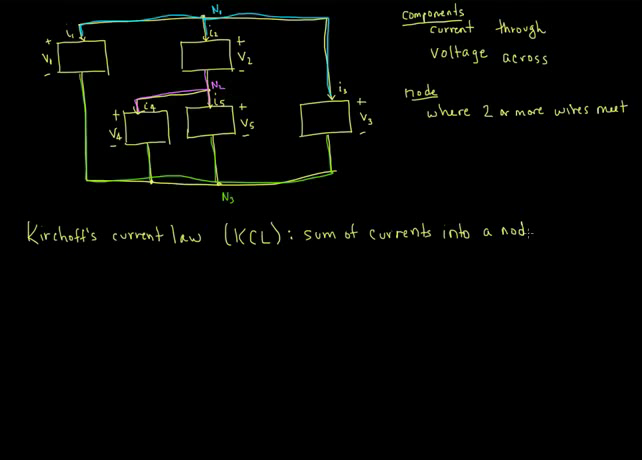 N1
i1
i2
+
V1
-
+
V2
-
N2
i4
i5
+
V4
-
+
V5
-
i3
+
V3
-
N3
Components
current through
voltage across
node
where 2 or more wires meet
Kirchoff's current law (KCL): sum of currents into a nod